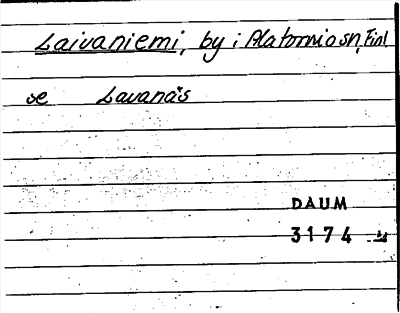 Laivaniemi, by i Alatornio sn, Finl.
se Lavanäs
DAUM
3174